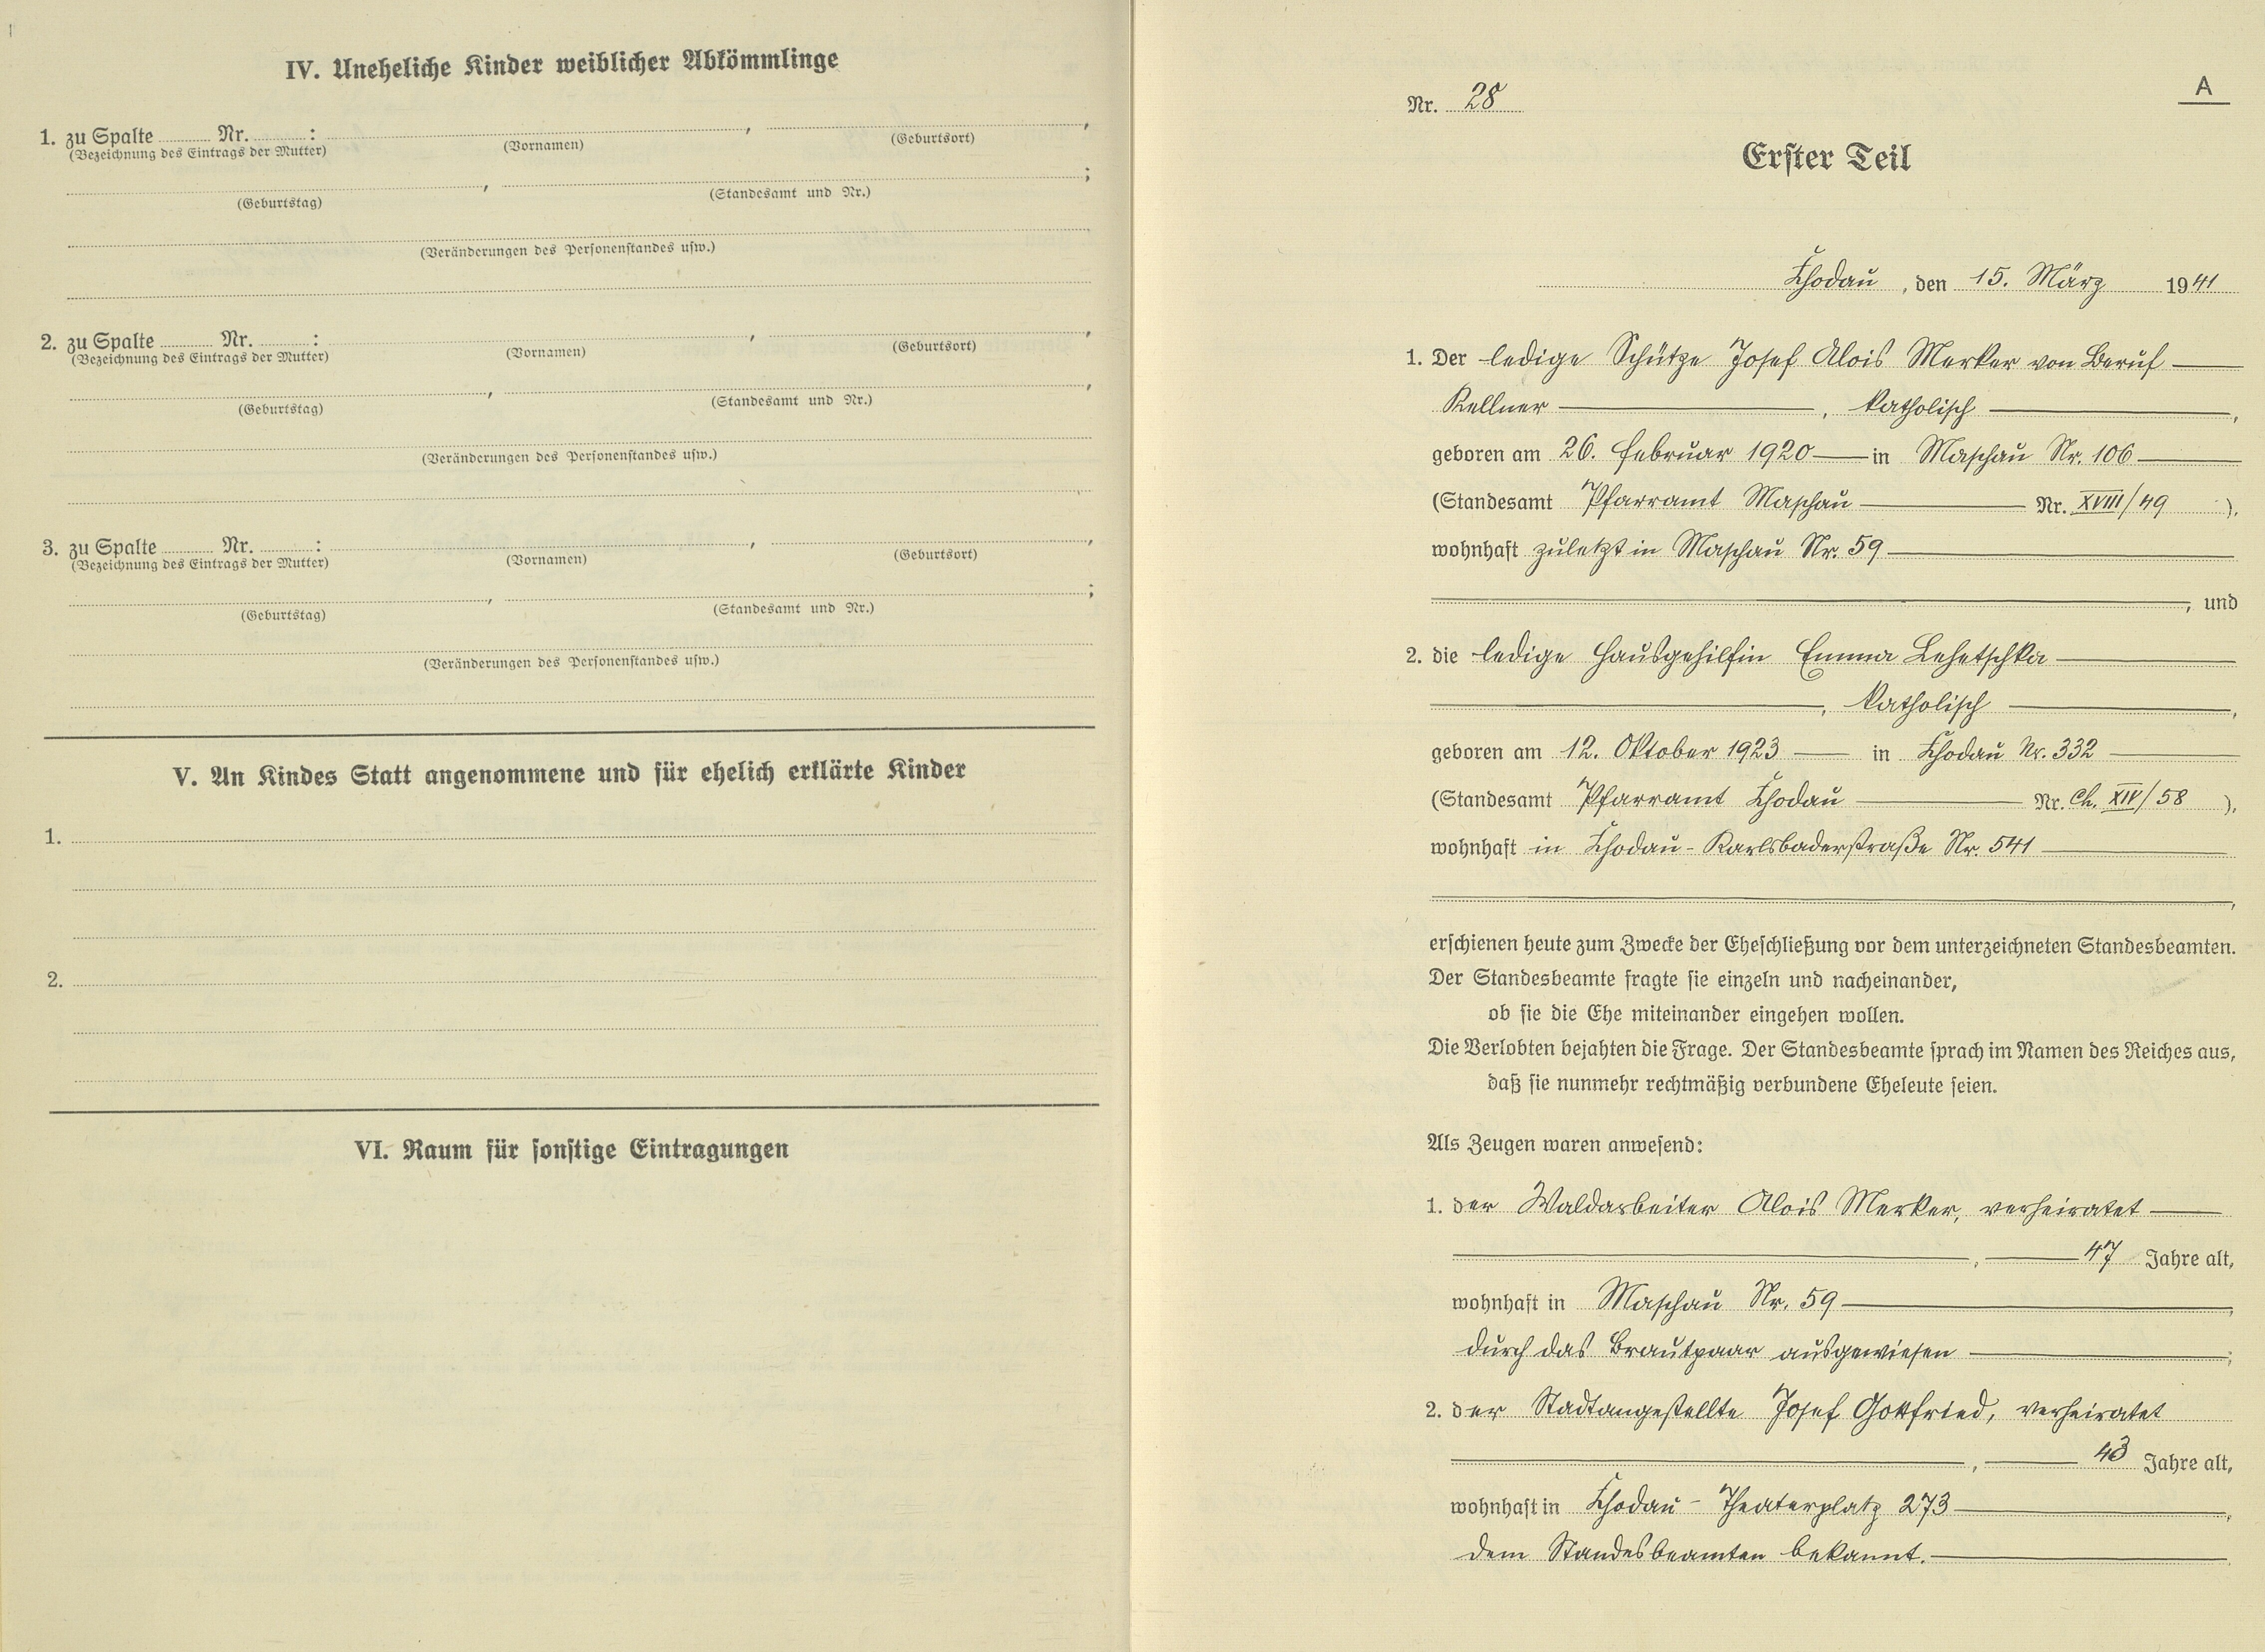 IV. Uneheliche Kinder weiblicher Abkömmlinge
1. zu Spalte Nr. : , ,
(Bezeichnung des Eintrags der Mutter) (Vornamen) (Geburtsort)
, ;
(Geburtstag) (Standesamt und Nr.)
(Veränderungen des Personenstandes usw.)
2. zu Spalte Nr. : , ,
(Bezeichnung des Eintrags der Mutter) (Vornamen) (Geburtsort)
, ,
(Geburtstag) (Standesamt und Nr.)
(Veränderungen des Personenstandes usw.)
3. zu Spalte Nr. : , ,
(Bezeichnung des Eintrags der Mutter) (Vornamen) (Geburtsort)
, ;
(Geburtstag) (Standesamt und Nr.)
(Veränderungen des Personenstandes usw.)
V. An Kindes Statt angenommene und für ehelich erklärte Kinder
1.
2.
VI. Raum für sonstige Eintragungen
A
Nr. 28
Erster Teil
Chodau, den 15. März 1941
1. Der ledige Schütze Josef Alois Merker von Beruf
Kellner, katholisch,
geboren am 26. Februar 1920 in Maschau Nr. 106
(Standesamt Pfarramt Maschau Nr. XVIII/49),
wohnhaft zuletzt in Maschau Nr. 59
, und
2. die ledige Hausgehilfin Emma Lehetschka
, katholisch,
geboren am 12. Oktober 1923 in Chodau Nr. 332
(Standesamt Pfarramt Chodau Nr. Ch. XIV/58),
wohnhaft in Chodau - Karlsbaderstraße Nr. 541
,
erschienen heute zum Zwecke der Eheschließung vor dem unterzeichneten Standesbeamten.
Der Standesbeamte fragte sie einzeln und nacheinander,
ob sie die Ehe miteinander eingehen wollen.
Die Verlobten bejahten die Frage. Der Standesbeamte sprach im Namen des Reiches aus,
daß sie nunmehr rechtmäßig verbundene Eheleute seien.
Als Zeugen waren anwesend:
1. der Waldarbeiter Alois Merker, verheiratet
, 47 Jahre alt,
wohnhaft in Maschau Nr. 59,
durch das Brautpaar ausgewiesen;
2. der Stadtangestellte Josef Gottfried, verheiratet
, 43 Jahre alt,
wohnhaft in Chodau - Theaterplatz 273,
dem Standesbeamten bekannt.